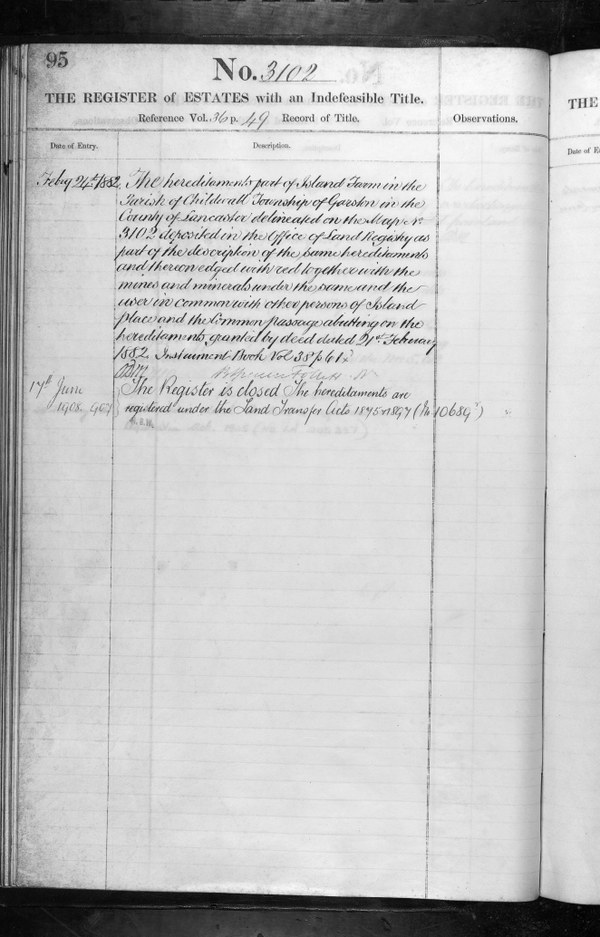 95
No. 3102
THE REGISTER of ESTATES with an Indefeasible Title.
Reference Vol. 36 p. 49 Record of Title.
Observations.
Date of Entry.
Description.
Feby 24th 1882. The hereditaments part of Island Farm in the
Parish of Childwall Township of Garston in the
County of Lancaster delineated on the Map No.
3102 deposited in the Office of Land Registry as
part of the description of the same hereditaments
and thereon edged with red together with the
mines and minerals under the same and the
user in common with other persons of Island
place and the Common passage abutting on the
hereditaments, granted by deed dated 21st February
1882. Instrument Book Vol 38 p 61.
17th June The Register is closed The hereditaments are
1908 registered under the Land Transfer Acts 1875 & 1897 (No. 10689)
THE
Date of E